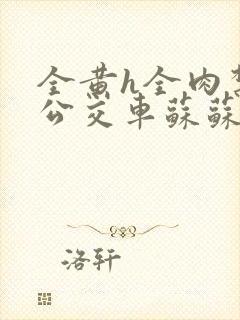 全黄h全肉
公交車蘇蘇
洛轩